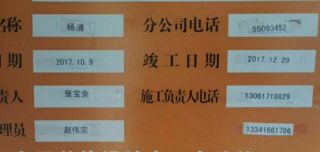 名称 杨浦 分公司电话 55093452
日期 2017.10.9 竣工日期 2017.12.29
责人 张宝余 施工负责人电话 13061718829
理员 赵伟宗 13341661786